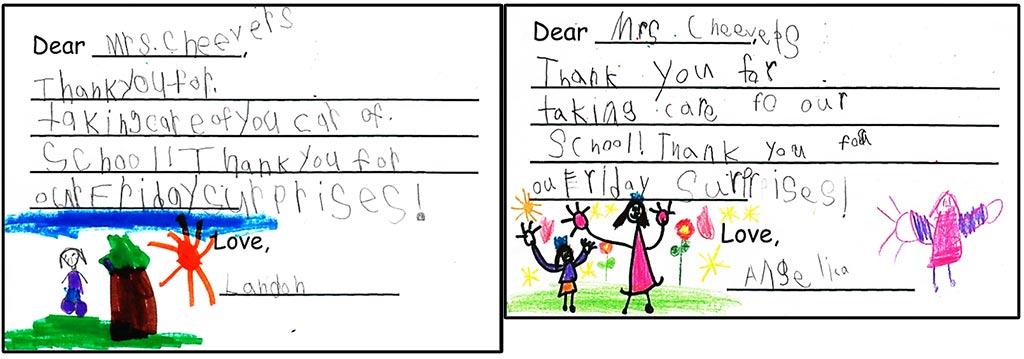 Dear Mrs. Cheevers,
Thank you for.
taking care of you car of.
School! Thank you for
our Friday Surprises!
Love,
Landon
Dear Mrs. Cheevers,
Thank you for
taking care fo our
School! Thank you for
ou Friday Surprises!
Love,
Angelica